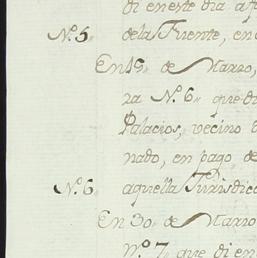 di en este dia a f
N.º 5,, de la Fuente, en
En 15,, de Marzo,
za N.º 6,, que di
Palacios, vecino
nado, en pago, de
N.º 6 aquella Jurisdic
En 30,, de Marzo
N.º 7, que di en